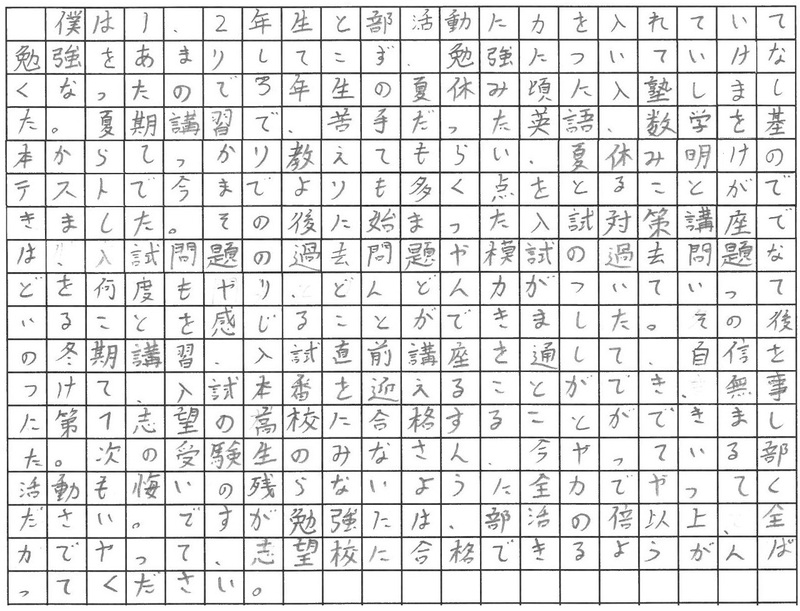 僕は1、2年生と部活動に力を入れていて
勉強をあまりしてこず、勉強についていけな
くなったので3年生の夏休み頃に入塾しまし
た。夏期講習で、苦手だった英語、数学を基
本からしっかり教えてもらい、夏休み明けの
テストで今までよりも多く点をとることがで
きました。その後に始まった入試対策講座で
は、入試問題の過去問題や模試の過去問題な
どを何度もやり、どんどん力がついていって
いることを感じることができました。その後
の冬期講習、入試直前講座を通して、自信を
つけて、入試本番を迎えることができ、無事
に第1志望の高校に合格することができまし
た。次の受験生のみなさん、今やっている部
活動も悔いの残らないように全力でやってく
ださい。ですが勉強には、部活の倍以上、全
力でやって、志望校に合格できるようがんば
ってください。